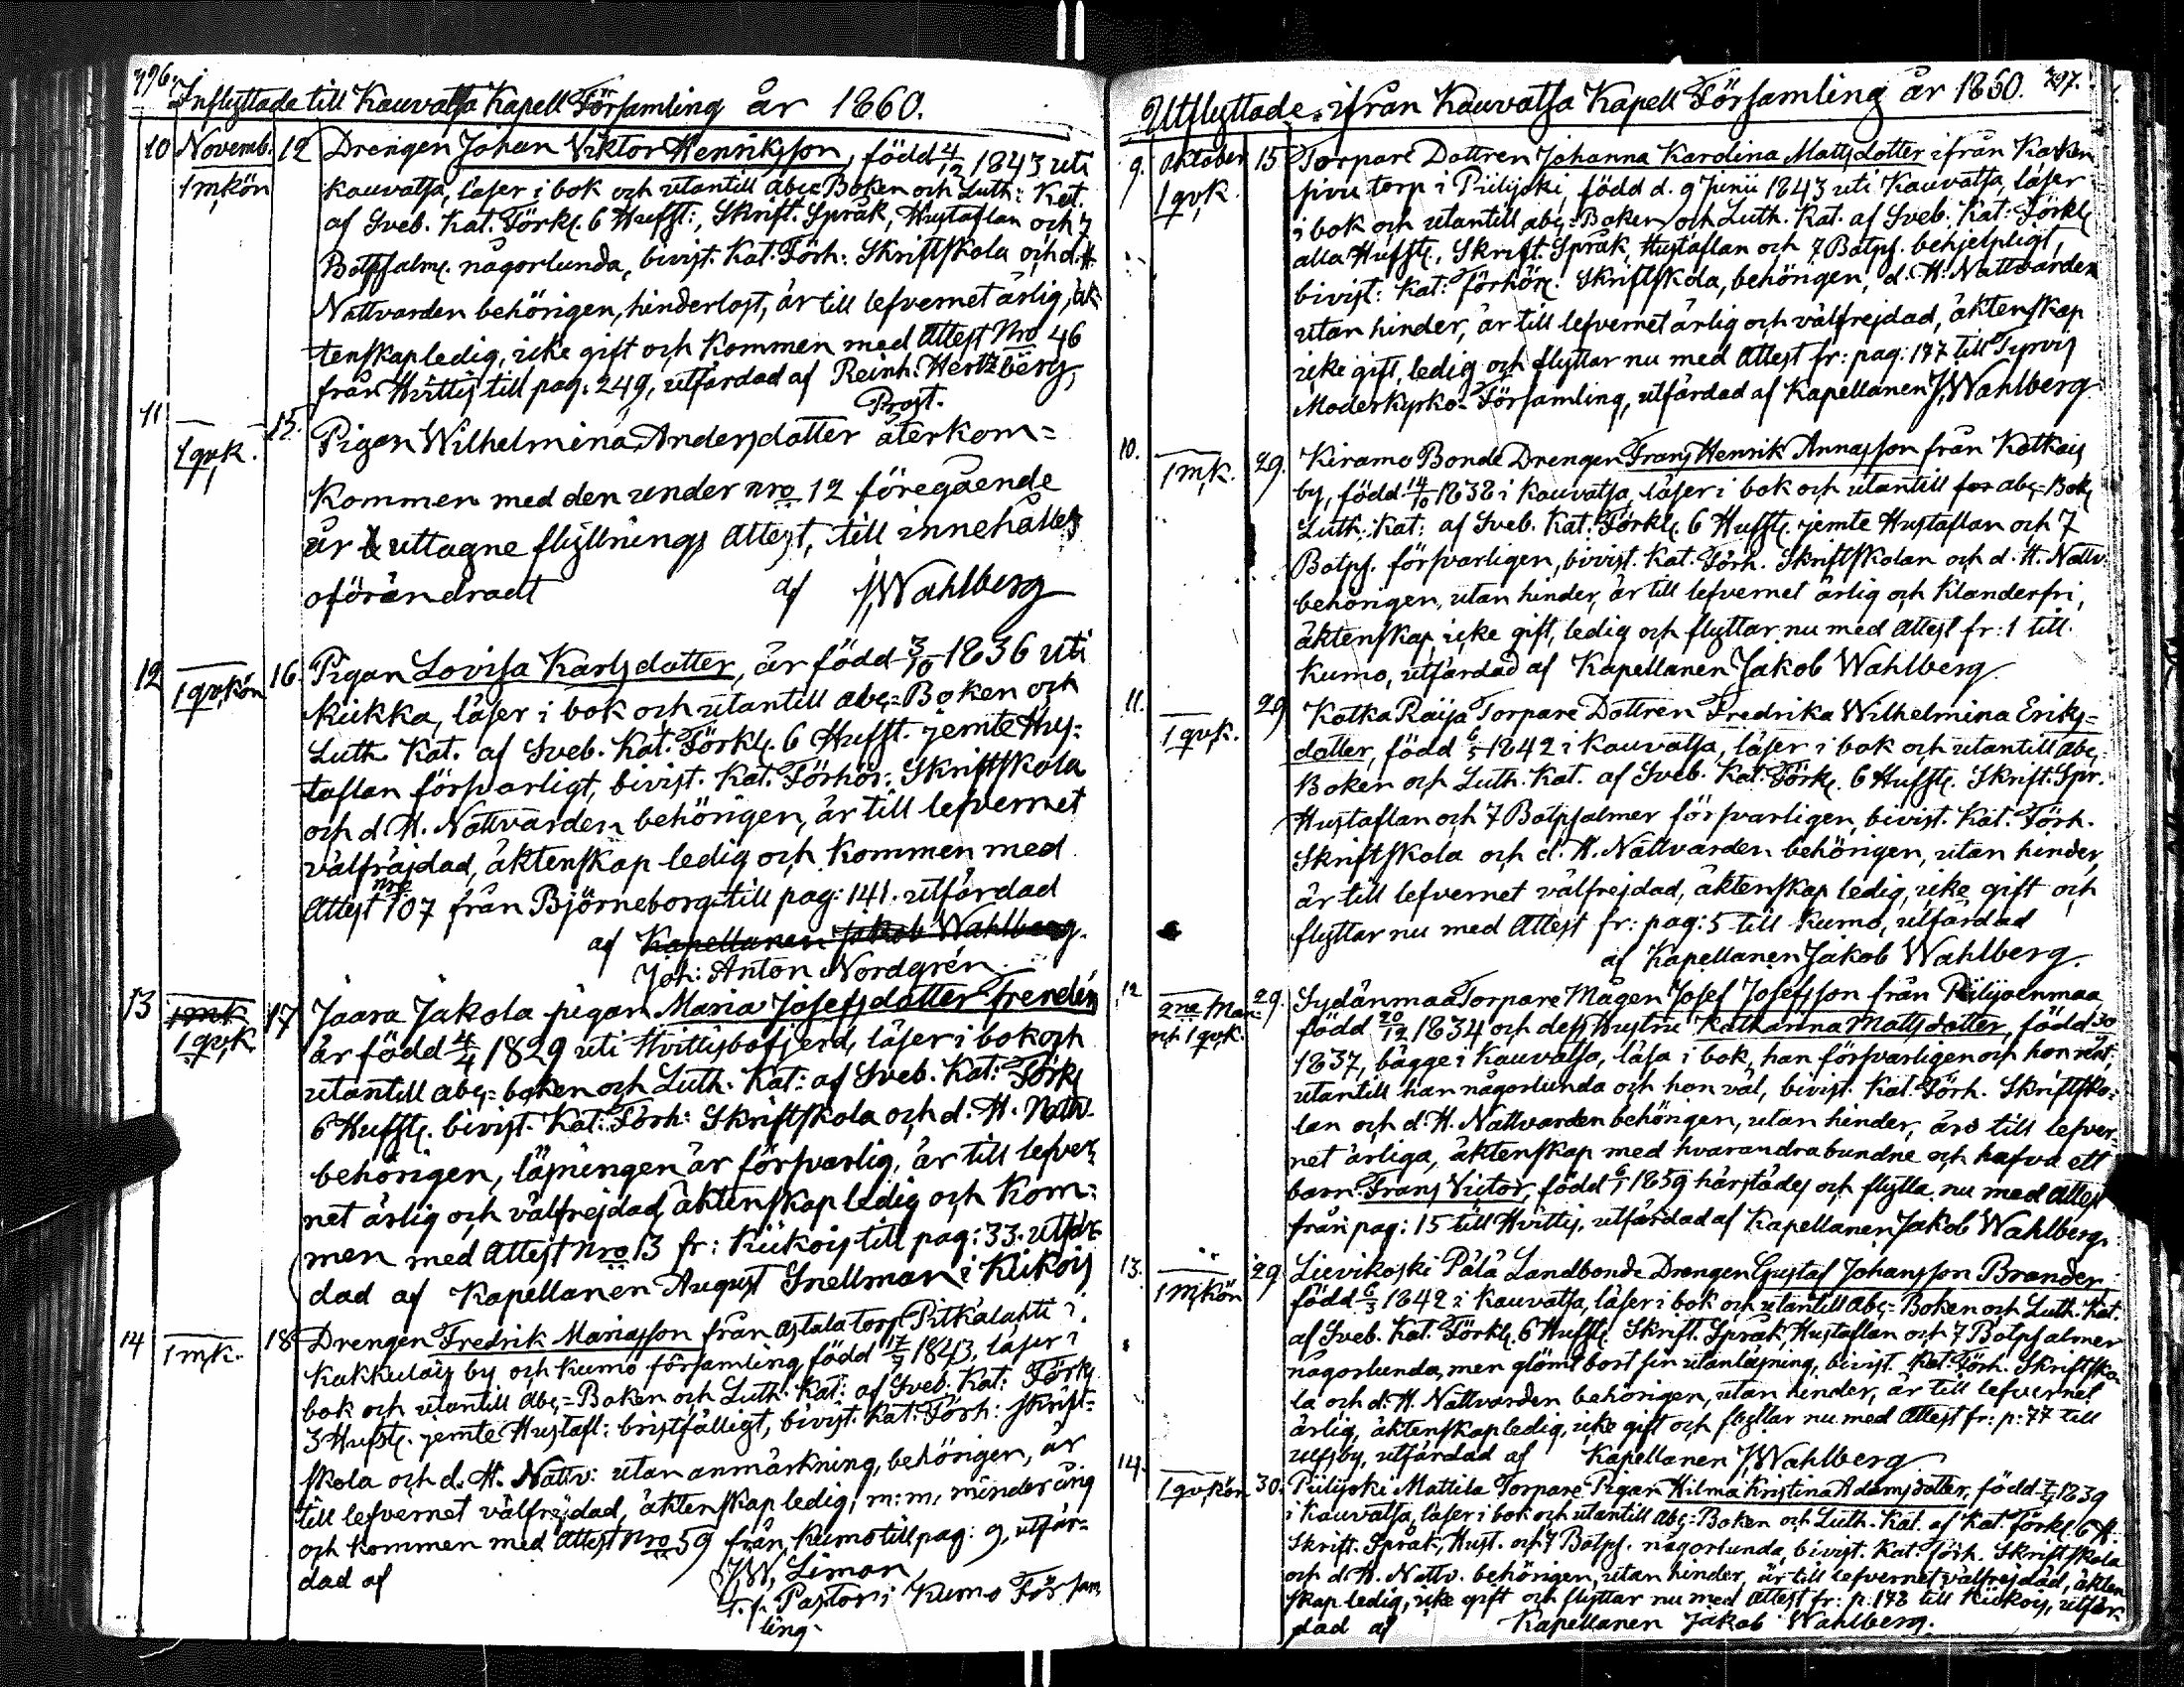 796.
Inflyttade till Kauvatsa Kapell Församling år 1860.
10 Novemb. 12 Drengen Johan Viktor Henriksson, född 4/12 1843 uti
1 mkön Kauvatsa, läser i bok och utantill abc Boken och Luth: Kat.
af Sveb. Kat. Förkl. 6 Hufst:, Skrift. Språk, Hustaflan och 7
Botpsalm. någorlunda, bivist. Kat. Förh: Skriftskola och d. H.
Nattvarden behörigen, hinderlöst, är till lefvernet ärlig, äk-
tenskap ledig, icke gift och kommen med Attest Nro 46
från Hvittis till pag: 249, utfärdad af Reinh: Hertzberg,
Prost.
11 1 qvk. 15. Pigan Wilhelmina Andersdotter återkom=
kommen med den under nro 12 föregående
år uttagne flyttnings Attest, till innehållet
oförändradt af J. Wahlberg
12 1 qvkön 16. Pigan Lovisa Karlsdotter, är född 3/10 1836 uti
Kiikka, läser i bok och utantill abc=Boken och
Luth. Kat. af Sveb. Kat. Förkl. 6 Hufst. jemte Hus=
taflan försvarligt, bivist. Kat. Förhör: Skriftskola
och d. H. Nattvarden behörigen, är till lefvernet
välfräjdad, äktenskap ledig och kommen med
Attest nro 107 från Björneborg till pag: 141. utfärdad
af Kapellanen Jakob Wahlberg.
Joh: Anton Nordgrén.
13 1 mk 1 qvk. 17 Jaara Jakola pigan Maria Josefsdotter Frendén
är född 4/4 1829 uti Hvittisbofjerd, läser i bok och
utantill abc=boken och Luth. Kat: af Sveb. Kat: Förkl
6 Hufst. bivist. Kat: Förh: Skriftskola och d. H. Nattv.
behörigen, läsningen är försvarlig, är till lefver
net ärlig och välfrejdad, äktenskap ledig och kom=
men med Attest Nro 13 fr: Kiikois till pag: 33. utfär
dad af Kapellanen August Snellman i Kiikois
14 1 mk. 18 Drengen Fredrik Mariasson från Astala torp Pitkälahti i
Kakkulais by och Kumo församling född 17/7 1843, läser i
bok och utantill Abc=Boken och Luth: Kat: af Sveb. Kat: Förkl
3 Hufst. jemte Hustafl: bristfälligt, bivist. Kat: Förh: Skrift=
skola och d. H. Nattv: utan anmärkning, behörigen, är
till lefvernet välfrejdad, äktenskap ledig, m: m, minderårig
och kommen med Attest Nro 59 från Kumo till pag: 9, utfär=
dad af J. W. Liman
t. f. Pastor i Kumo Försam
ling.
797.
Utflyttade ifrån Kauvatsa Kapell Församling år 1860.
9. Oktober 15 Torpare Dottren Johanna Karolina Mattsdotter ifrån Kosken
1 qvk. sivu torp i Piilijoki, född d. 9 Junii 1843 uti Kauvatsa, läser
i bok och utantill abc=Boken och Luth. Kat. af Sveb. Kat: Förkl
alla Hufst., Skrift. Språk, Hustaflan och 7 Botps. behjelpligt,
bivist: Kat: Förhör. Skriftskola, behörigen, d. H: Nattvarden
utan hinder, är till lefvernet ärlig och välfrejdad, äktenskap
icke gift, ledig och flyttar nu med Attest fr: pag: 177 till Tyrvis
Moderkyrko=Församling, utfärdad af Kapellanen J. Wahlberg
10. 1 mk. 29. Kiramo Bonde Drengen Frans Henrik Annasson från Kotkais
by, född 14/10 1838 i Kauvatsa, läser i bok och utantill abc=Bok
Luth: Kat: af Sveb. Kat: Förkl. 6 Hufst. jemte Hustaflan och 7
Botps. försvarligen, bivist. Kat. Förh. Skriftskolan och d. H. Nattv.
behörigen, utan hinder, är till lefvernet ärlig och klanderfri,
äktenskap, icke gift, ledig och flyttar nu med Attest fr: 1 till
Kumo, utfärdad af Kapellanen Jakob Wahlberg
11. 1 qvk. 29 Kotka Raija Torpare Dottren Fredrika Wilhelmina Eriks=
dotter, född 6/5 1842 i Kauvatsa, läser i bok och utantill abc=
Boken och Luth. Kat. af Sveb. Kat: Förkl. 6 Hufst. Skrift. Spr.
Hustaflan och 7 Botpsalmer försvarligen, bivist. Kat. Förh.
Skriftskola och d. H. Nattvarden behörigen, utan hinder,
är till lefvernet välfrejdad, äktenskap ledig, icke gift och
flyttar nu med Attest fr: pag: 5 till Kumo, utfärdad
af Kapellanen Jakob Wahlberg.
12 29. Sydänmaa Torpare Mågen Josef Josefsson från Piilijoenmaa
och 1 qvk. född 20/12 1834 och dess Hustru Katharina Mattsdotter, född
1837, bägge i Kauvatsa, läsa i bok, han försvarligen och hon rent,
utantill han någorlunda och hon väl, bivist. Kat. Förh. Skriftsko=
lan och d. H. Nattvarden behörigen, utan hinder, äro till lefver=
net ärliga, äktenskap med hvarandra bundne och hafva ett
barn: Frans Victor, född 6/1 1859 härstädes och flytta nu med Attest
från pag: 15 till Hvittis, utfärdad af Kapellanen Jakob Wahlberg.
13. 1 mkön 29 Lievikoski Pälä Landbonde Drengen Gustaf Johansson Brander,
född 6/3 1842 i Kauvatsa, läser i bok och utantill Abc=Boken och Luth. Kat.
af Sveb. Kat. Förkl. 6 Hufst. Skrift. Språk, Hustaflan och 7 Botpsalmer
någorlunda, men glömt bort sin utanläsning, bivist. Kat. Förh. Skriftsko
la och d. H. Nattvarden behörigen, utan hinder, är till lefvernet
ärlig, äktenskap ledig, icke gift och flyttar nu med Attest fr: p: 77 till
Ulfsby, utfärdad af Kapellanen J. Wahlberg
14. 1 qvkön 30. Piilijoki Mattila Torpare Pigan Hilma Kristina Adamsdotter, född 1839
i Kauvatsa, läser i bok och utantill Abc=Boken och Luth. Kat. af Kat. Förkl. 6 H.
Skrift. Språk, Hust. och 7 Botps. någorlunda, bivist. Kat. Förh. Skriftskola
och d. H. Nattv. behörigen, utan hinder, är till lefvernet välfrejdad, äkten
skap ledig, icke gift och flyttar nu med Attest fr: p. 178 till Kiikois, utfär
dad af Kapellanen Jakob Wahlberg.